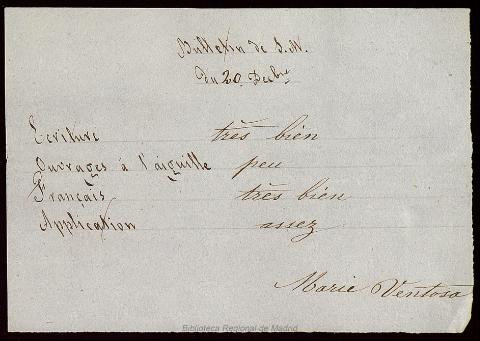 Bulletin de S.N.
du 20 Decbre
Ecriture très bien
Ouvrages à l'aiguille peu
Français très bien
Application assez
Marie Ventosa
Biblioteca Regional de Madrid